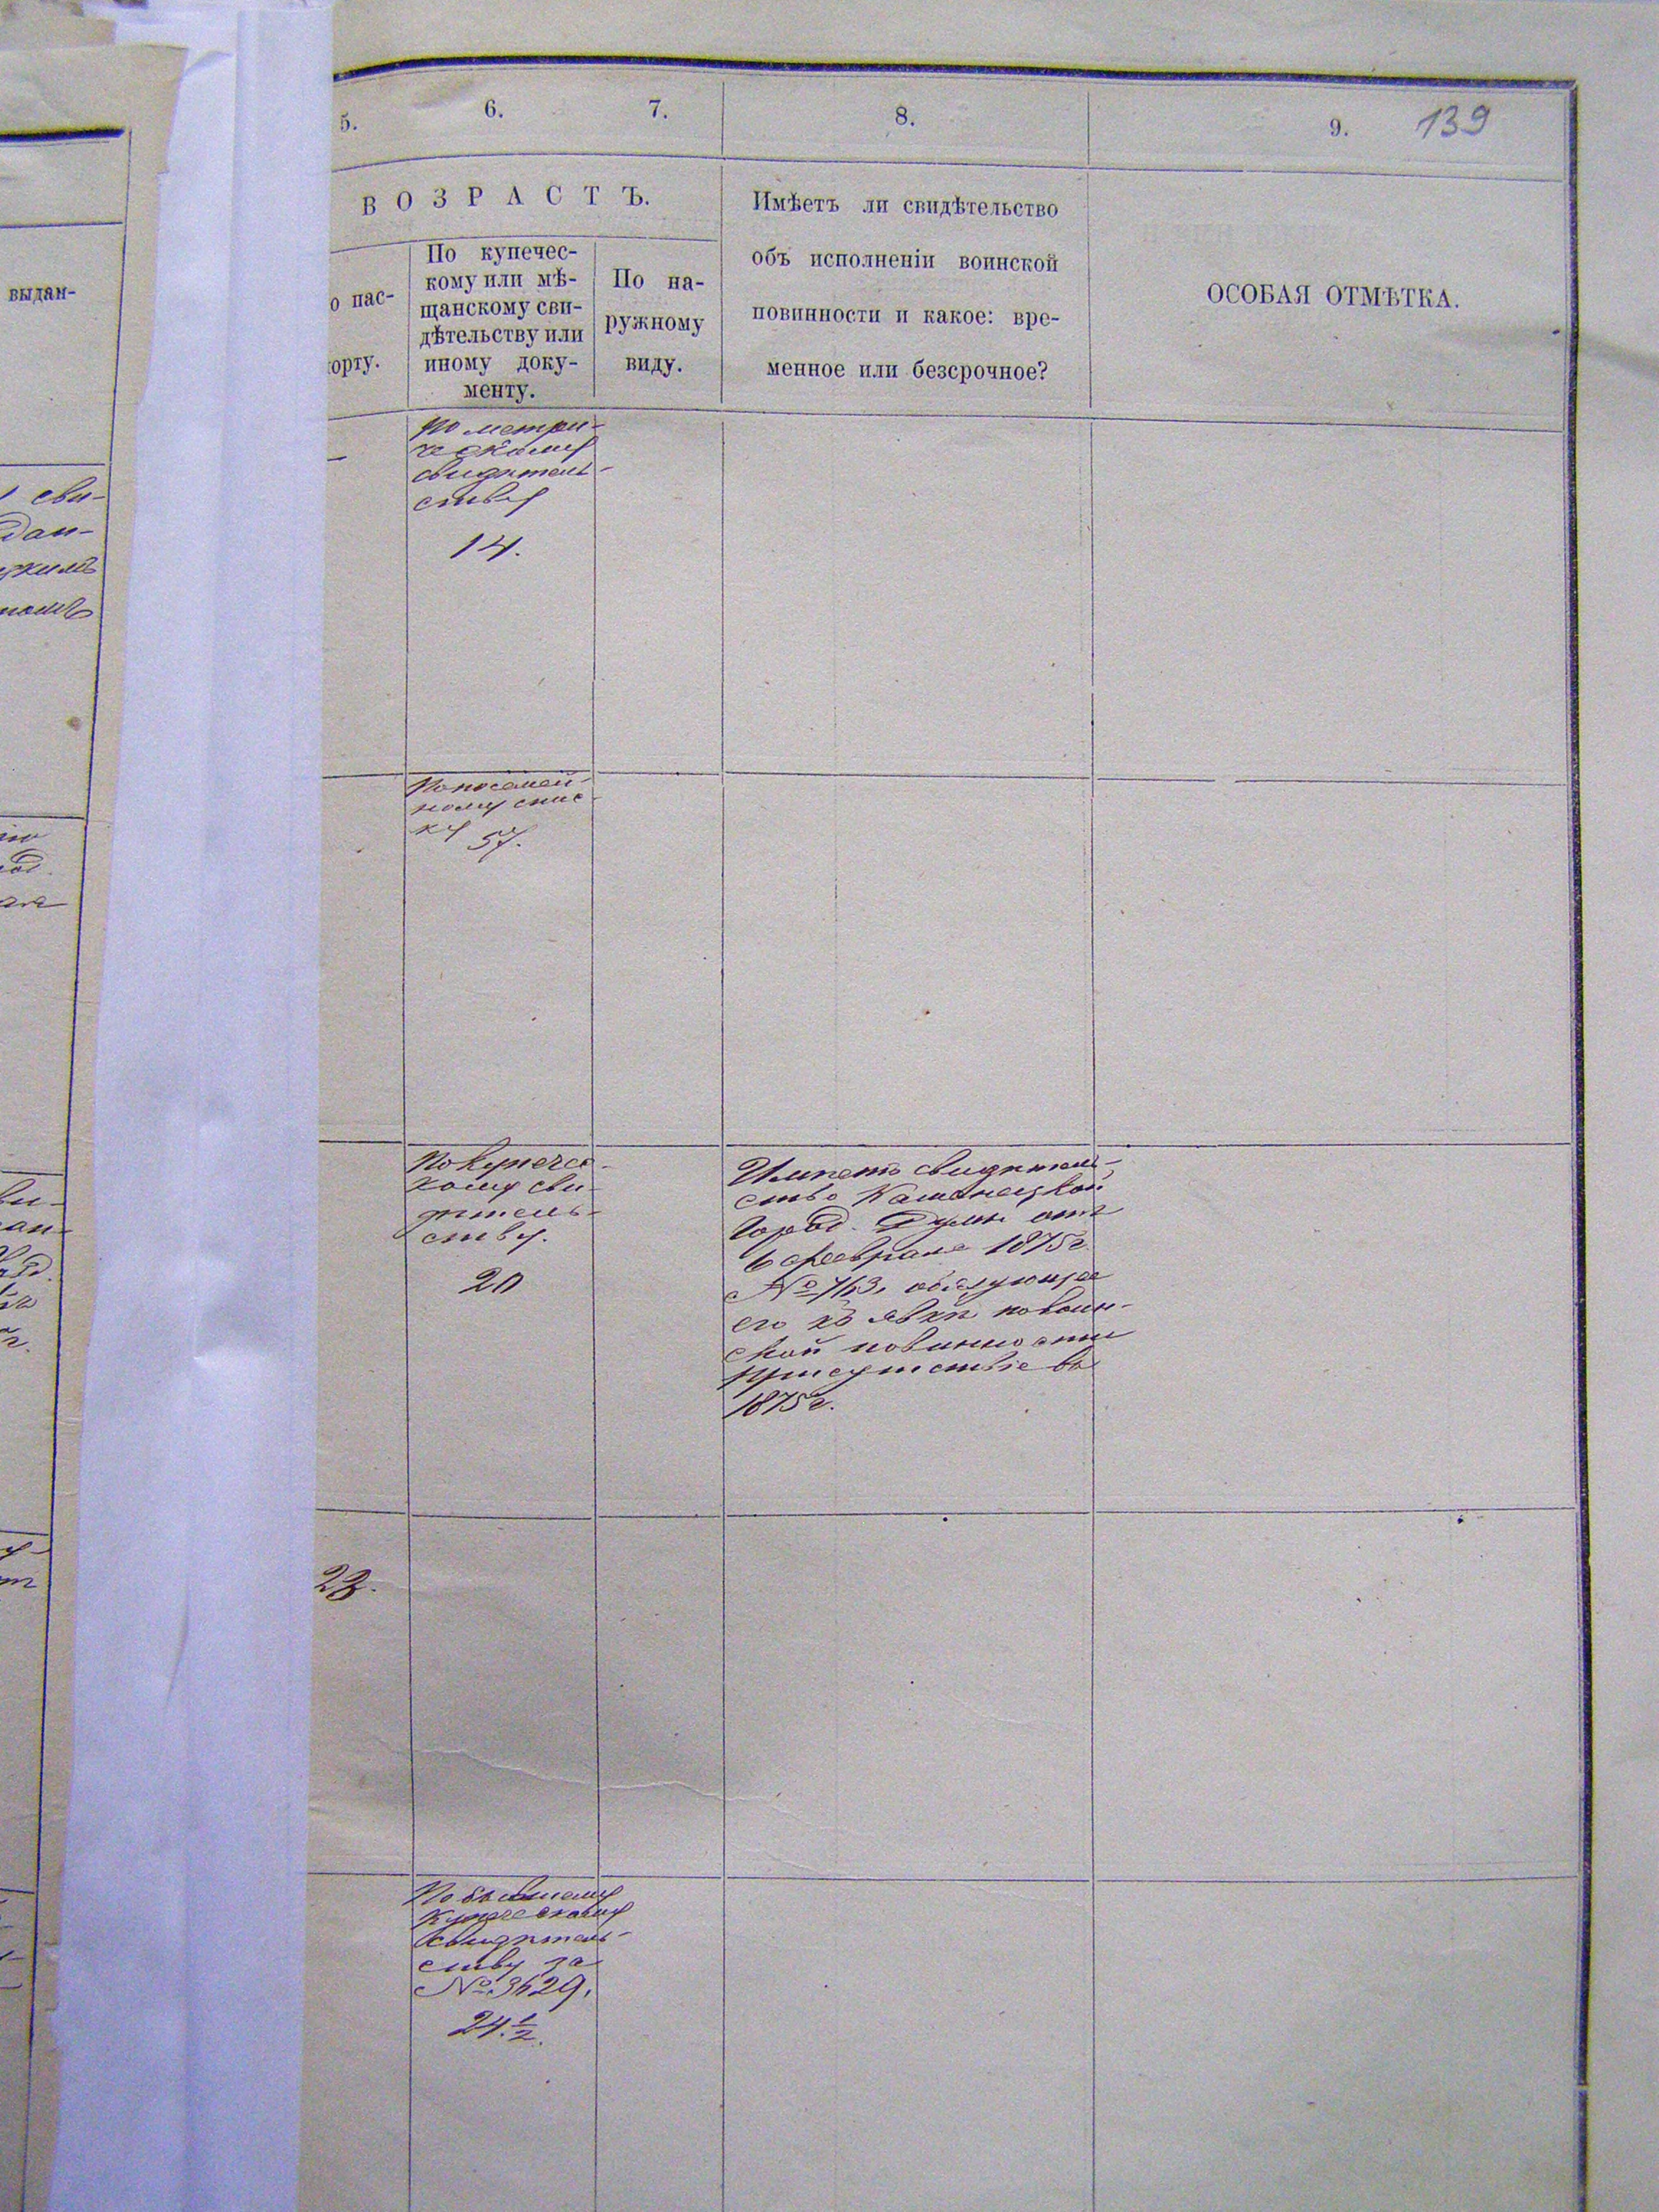 выдан-
5.
6.
7.
8.
9.
139
ВОЗРАСТЪ.
о пас-
орту.
По купечес-
кому или мѣ-
щанскому сви-
дѣтельству или
иному доку-
менту.
По на-
ружному
виду.
Имѣетъ ли свидѣтельство
объ исполненіи воинской
повинности и какое: вре-
менное или безсрочное?
ОСОБАЯ ОТМѢТКА.
сви-
дан-
—
По метри-
ческому
свидѣтель-
ству
14.
По посемей-
ному спис-
ку
57.
По купечес-
кому сви-
дѣтель-
ству.
20
Имѣетъ свидѣтель-
ство Каменецкой
Город. Думы отъ
6 февраля 1875 г.
№ 763, обязующее
его къ явкѣ по воин-
ской повинности
присутствіе въ
1875 г.
23.
По бывшему
купеческому
свидѣтель-
ству за
№ 3629.
24.½.